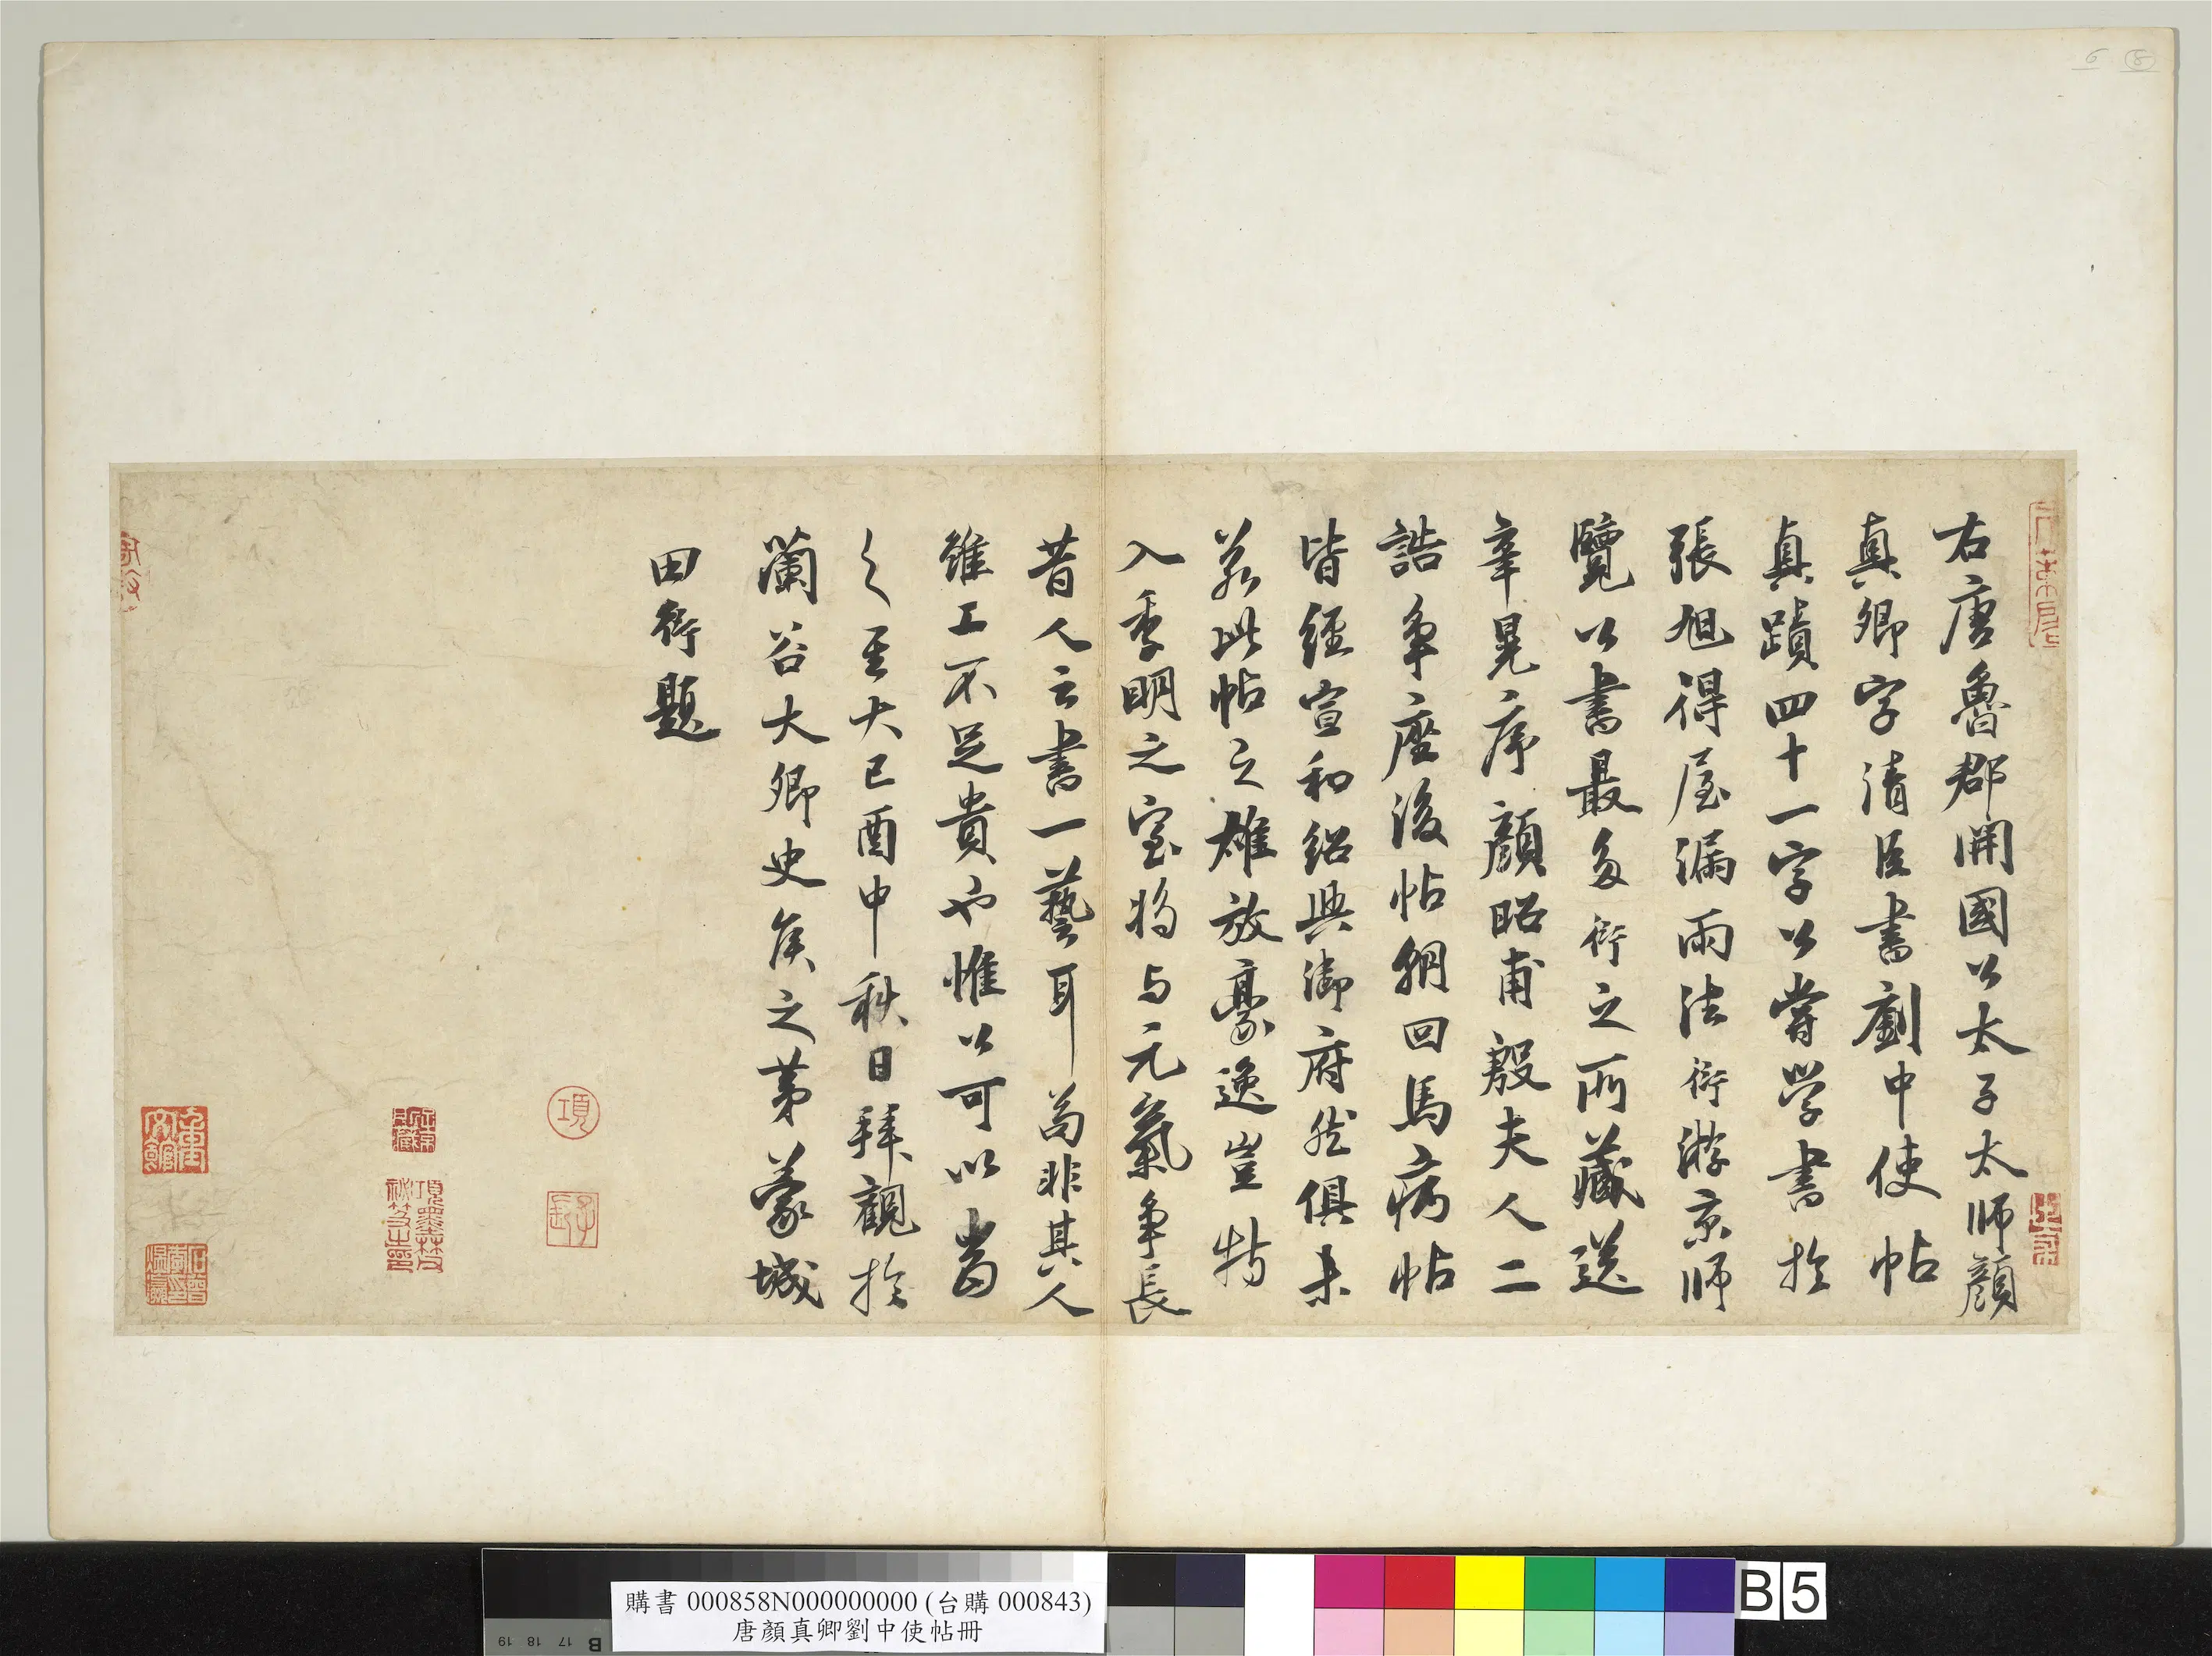 右唐魯郡開國公太子太師顏
真卿字清臣書劉中使帖
真蹟四十一字公嘗學書於
張旭得屋漏雨法衍游京師
覽公書最多衍之所藏送
辛晃序顏昭甫殷夫人二
誥爭座後帖朝回馬病帖
皆經宣和紹興御府然俱未
若此帖之雄放豪逸豈特
入季明之室將与元氣爭長
昔人云書一藝耳苟非其人
雖工不足貴也惟公可以當
之至大己酉中秋日拜觀於
蘭谷大卿史矦之第蒙城
田衍題
項
子長
項墨林父秘笈之印
6 8
購書 000858N000000000 (台購 000843)
唐顏真卿劉中使帖冊
B 17 18 19
B 5